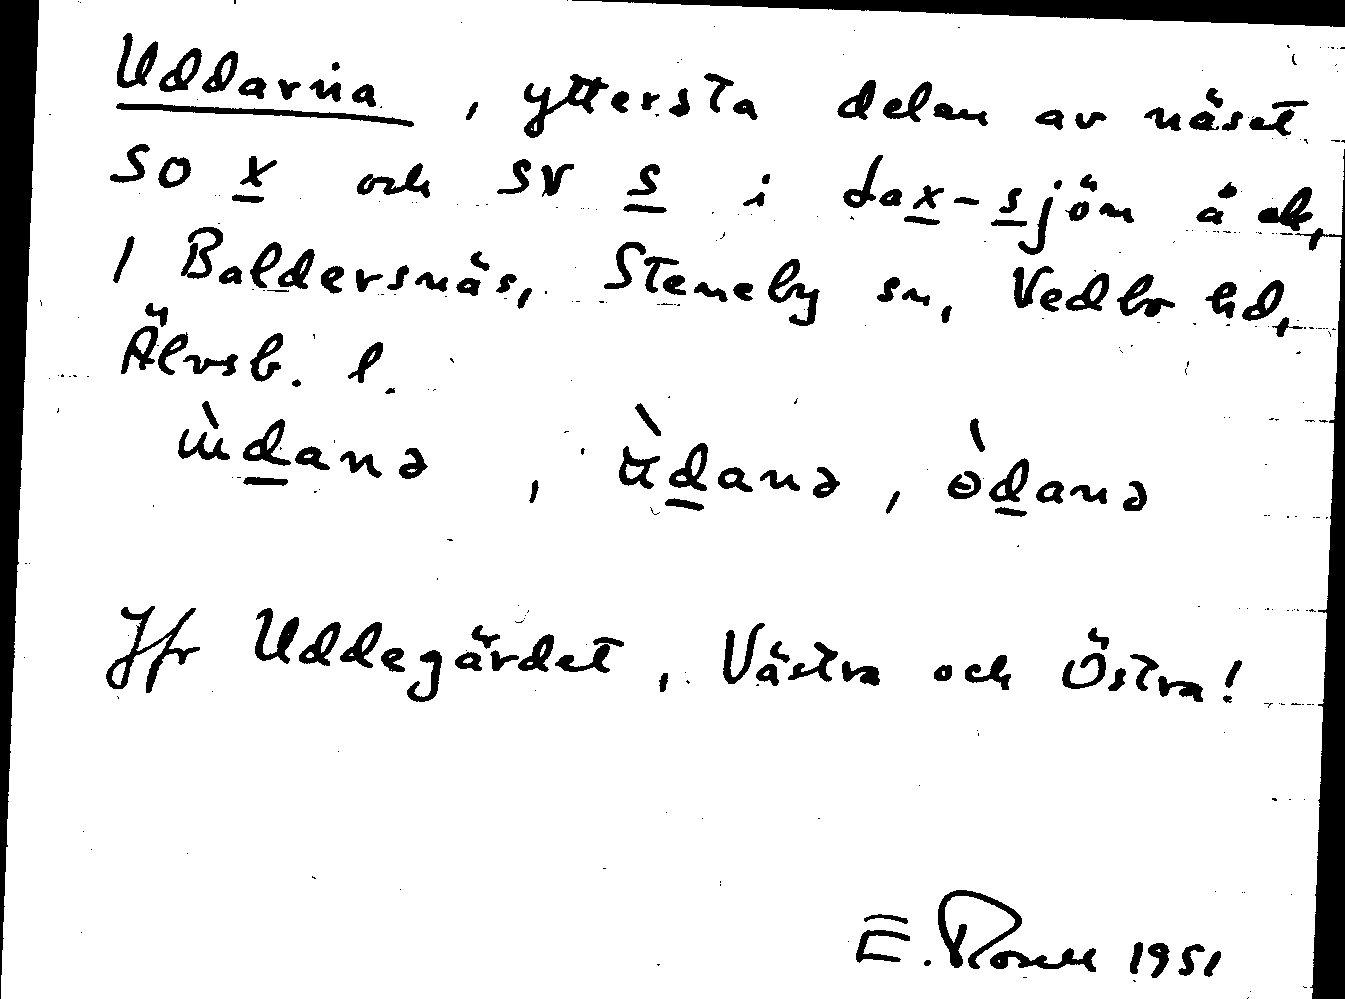 Uddarna, yttersta delen av näset
SO x och SV s i Lax-sjön å ek,
1 Baldersnäs, Steneby sn, Vedbo hd,
Älvsb. l.
ɯ̀danə, ùdanə, ɵ̀danə
Jfr Uddegärdet, Västra och Östra!
E. Rosell 1951